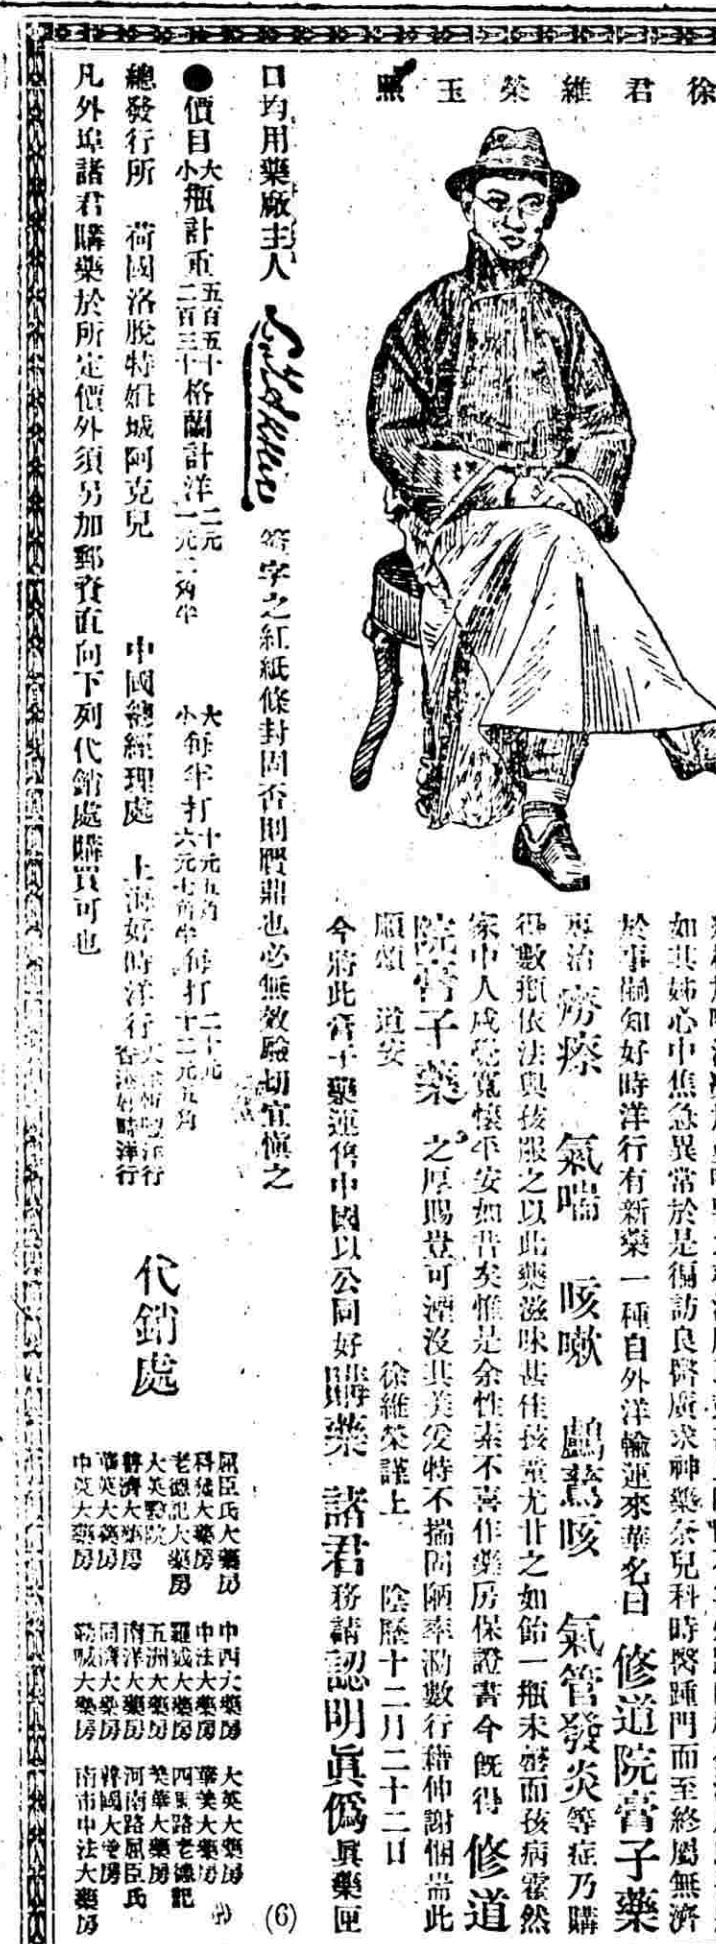 徐君維榮玉照
如其姊心中焦急異常於是徧訪良醫廣求神藥奈兒科時醫踵門而至終屬無濟
於事嗣知好時洋行有新藥一種自外洋輸運來華名曰 修道院膏子藥
專治 癆瘵 氣喘 咳嗽 鸕鶿咳 氣管發炎等症乃購
得數瓶依法與孩服之以此藥滋味甚佳孩童尤甘之如飴一瓶未罄而孩病霍然
家中人咸覺寬懷平安如昔矣惟是余性素不喜作藥房保證書今旣得 修道
院膏子藥 之厚賜豈可湮沒其美爰特不揣固陋率泐數行藉伸謝悃耑此
順頌 道安 徐維榮謹上 陰歷十二月二十二日
今將此膏子藥運售中國以公同好購藥諸君務請認明眞僞眞藥匣
口均用藥廠主人 簽字之紅紙條封固否則贋鼎也必無效驗切宜愼之
●價目大小瓶計重五百五十二百三十格蘭計洋二元一元二角半 大小每半打十元五角六元七角半每打二十元十二元五角
總發行所 荷國洛脫特姆城阿克兒 中國總經理處 上海好時洋行
香港好時洋行
凡外埠諸君購藥於所定價外須另加郵資直向下列代銷處購買可也
代銷處
屈臣氏大藥房 中西大藥房 大英大藥房
科發大藥房 中法大藥房 華美大藥房
老德記大藥房 羅威大藥房 四馬路老德記
大英醫院 五洲大藥房 美華大藥房
普濟大藥房 南洋大藥房 河南路屈臣氏
華英大藥房 同濟大藥房
中英大藥房 南市中法大藥房
(6)